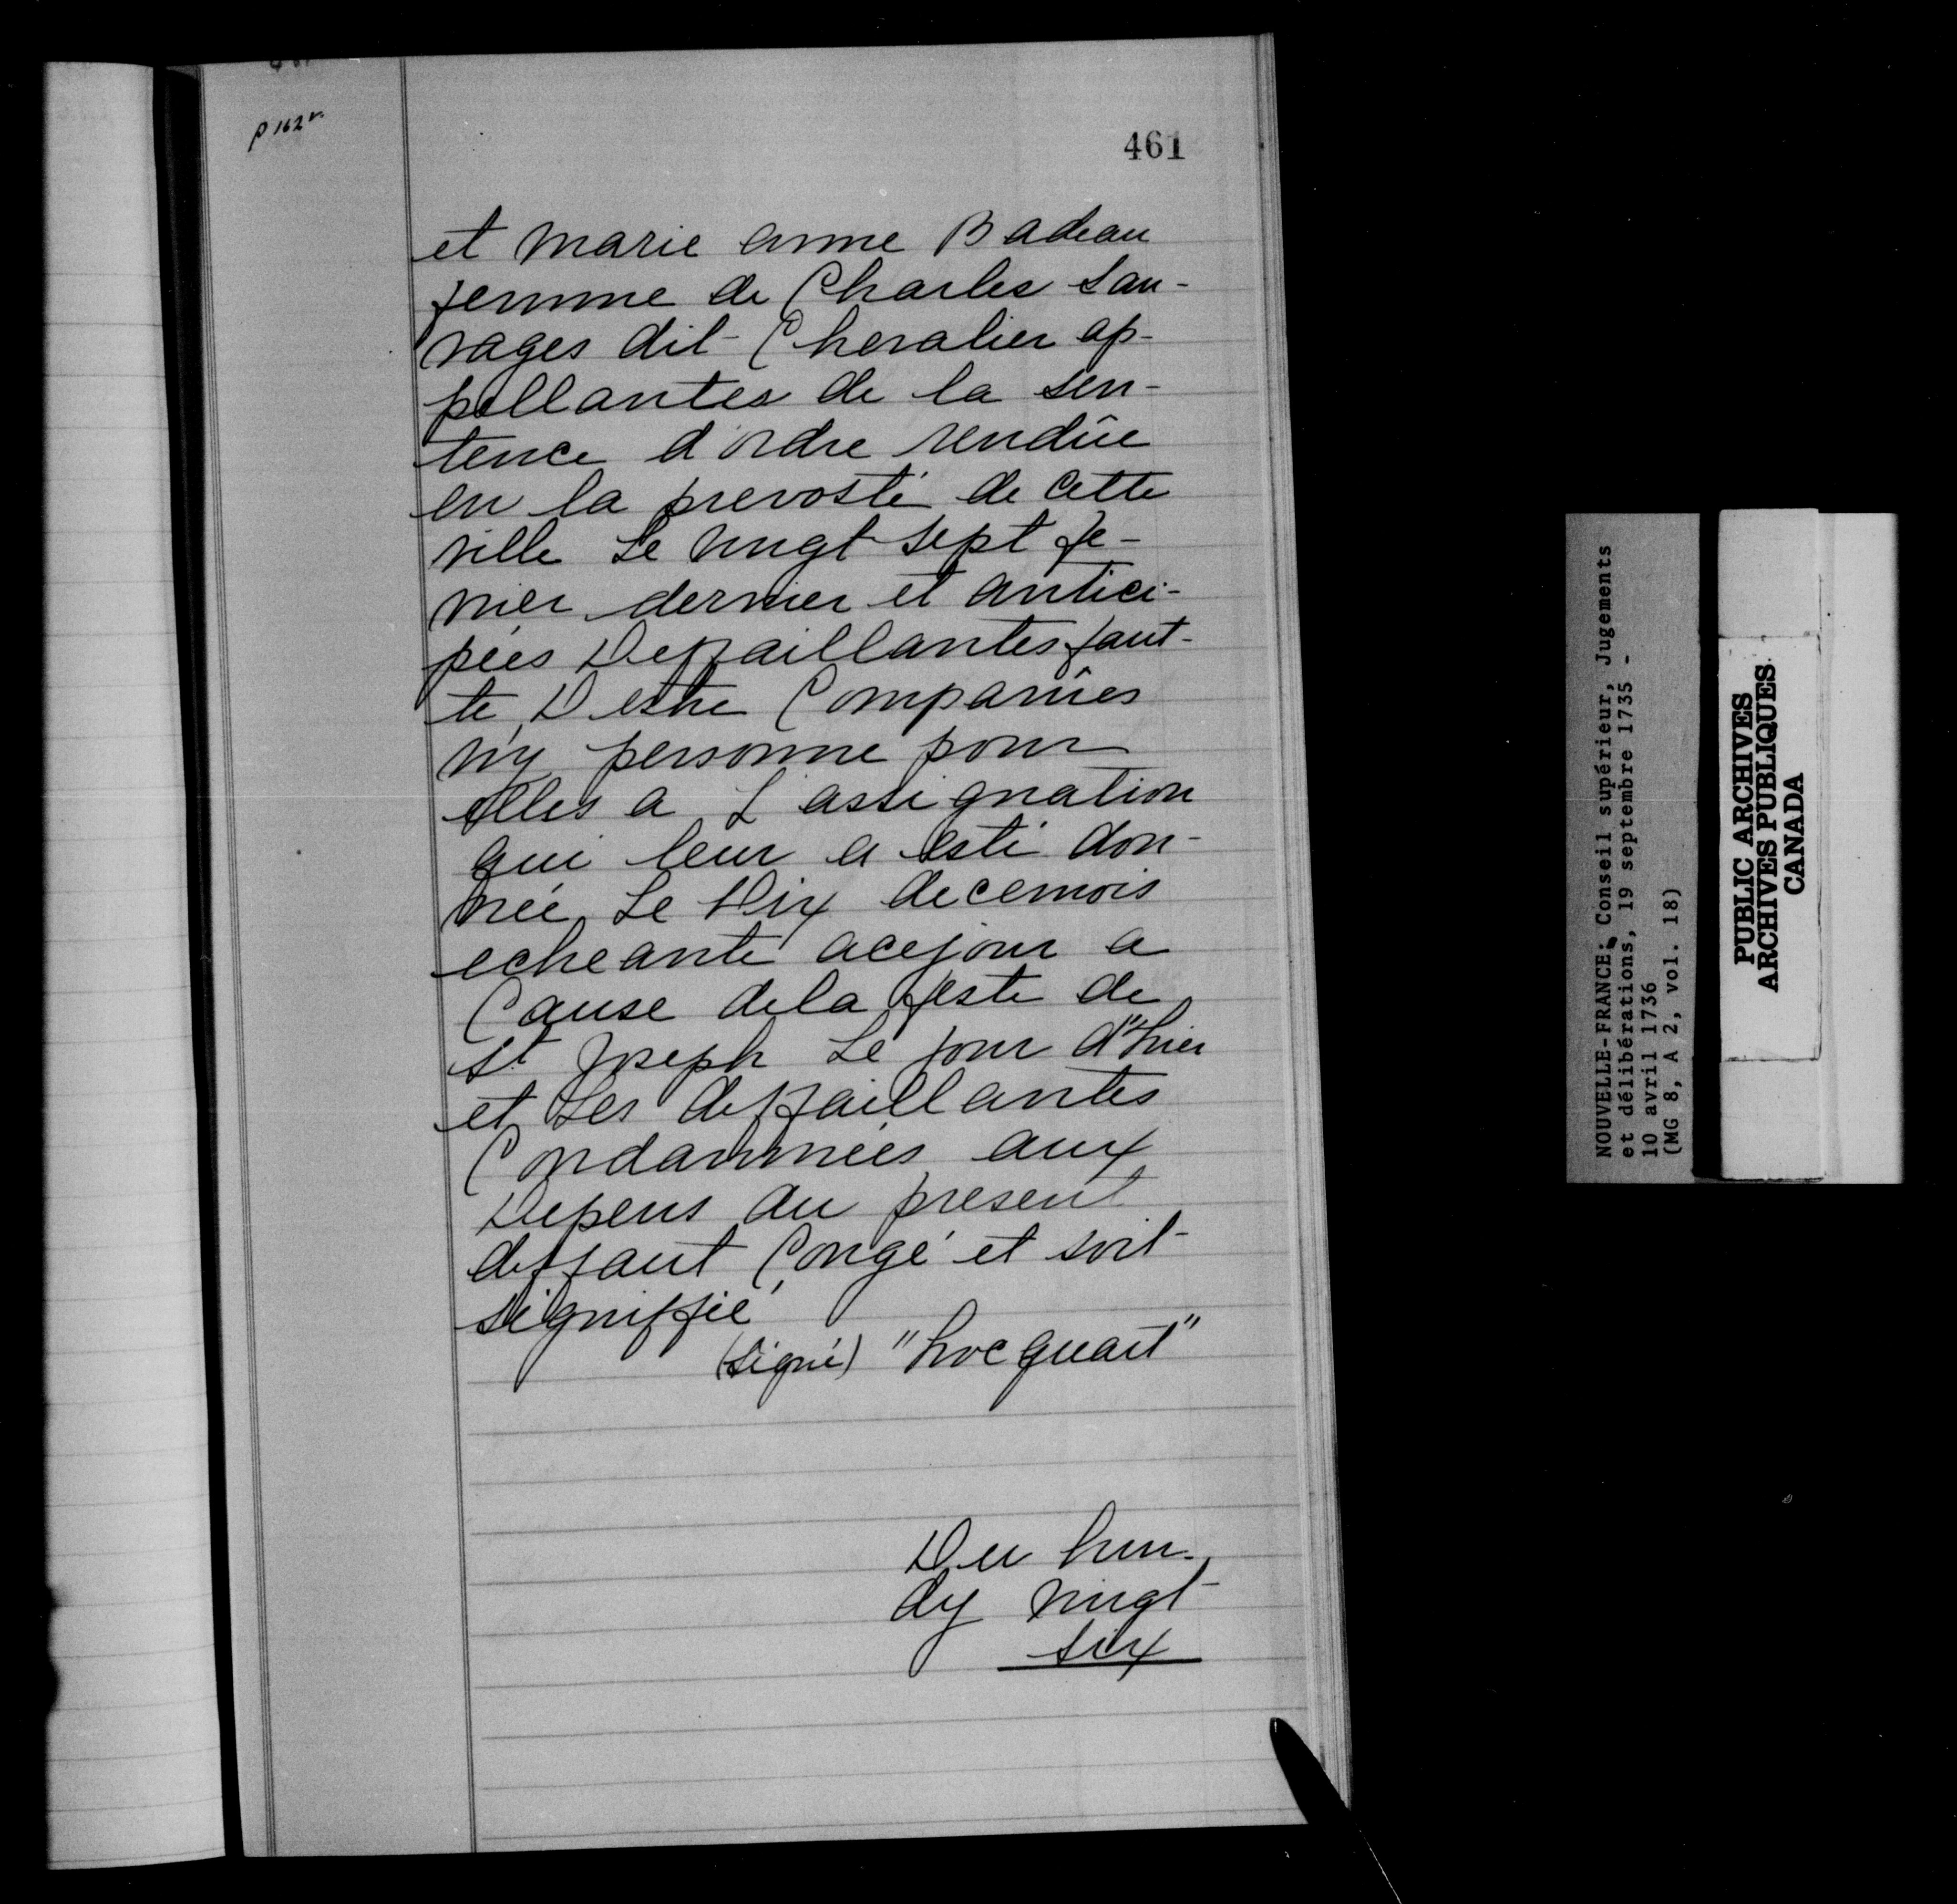 p 162 v.
461
et marie anne Badeau
femme de Charles sau-
vages dit Chevalier ap-
pellantes de la sen-
tence d'ordre rendûe
en la prevosté de cette
ville Le vingt sept fe-
vrier dernier et antici-
pées Deffaillantes faut-
te Destre Comparûes
n'y personne pour
elles a L'assignation
qui leur a esté don-
née Le Dix decemois
echeante acejour a
Cause dela feste de
st Joseph Le jour d'hier
et Les deffaillantes
Condamnées aux
Depens du present
deffaut Congé et soit
signiffié
(signé) "hocquart"
Du lun-
dy vingt
six
NOUVELLE-FRANCE: Conseil supérieur, Jugements
et délibérations, 19 septembre 1735 -
10 avril 1736
(MG 8, A 2, vol. 18)
PUBLIC ARCHIVES
ARCHIVES PUBLIQUES
CANADA